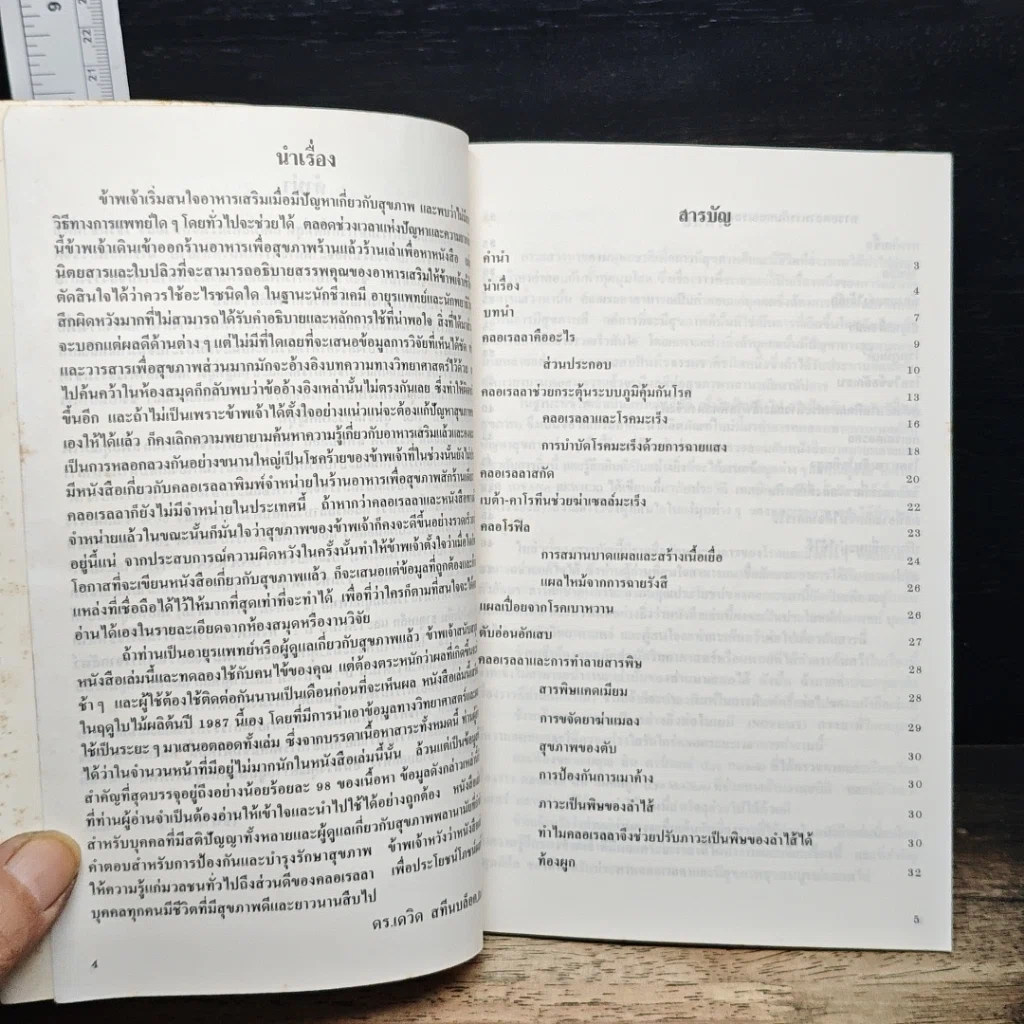 9
22
21
นำเรื่อง
ข้าพเจ้าเริ่มสนใจอาหารเสริมเมื่อมีปัญหาเกี่ยวกับสุขภาพ และพบว่าไม่มี
วิธีทางการแพทย์ใด ๆ โดยทั่วไปจะช่วยได้ ตลอดช่วงเวลาแห่งปัญหาและความ
นี้ข้าพเจ้าเดินเข้าออกร้านอาหารเพื่อสุขภาพร้านแล้วร้านเล่าเพื่อหาหนังสือ
นิตยสารและใบปลิวที่จะสามารถอธิบายสรรพคุณของอาหารเสริมให้ข้าพเจ้า
ตัดสินใจได้ว่าควรใช้อะไรชนิดใด ในฐานะนักชีวเคมี อายุรแพทย์และนัก
สึกผิดหวังมากที่ไม่สามารถได้รับคำอธิบายและหลักการใช้ที่น่าพอใจ สิ่งที่ได้
จะบอกแต่ผลดีด้านต่าง ๆ แต่ไม่มีที่ใดเลยที่จะเสนอข้อมูลการวิจัยที่เห็นได้ชัด
และวารสารเพื่อสุขภาพส่วนมากมักจะอ้างอิงบทความทางวิทยาศาสตร์ไว้ด้วย
ไปค้นคว้าในห้องสมุดก็กลับพบว่าข้ออ้างอิงเหล่านั้นไม่ตรงกันเลย ซึ่งทำให้
ขึ้นอีก และถ้าไม่เป็นเพราะข้าพเจ้าได้ตั้งใจอย่างแน่วแน่จะต้องแก้ปัญหาสุขภาพ
เองให้ได้แล้ว ก็คงเลิกความพยายามค้นหาความรู้เกี่ยวกับอาหารเสริมแล้ว
เป็นการหลอกลวงกันอย่างขนานใหญ่เป็นโชคร้ายของข้าพเจ้าที่ในช่วงนั้นยังไม่
มีหนังสือเกี่ยวกับคลอเรลลาพิมพ์จำหน่ายในร้านอาหารเพื่อสุขภาพสักร้าน
คลอเรลลาก็ยังไม่มีจำหน่ายในประเทศนี้ ถ้าหากว่าคลอเรลลาและหนังสือ
จำหน่ายแล้วในขณะนั้นก็มั่นใจว่าสุขภาพของข้าพเจ้าก็คงจะดีขึ้นอย่างรวดเร็ว
อยู่นี้แน่ จากประสบการณ์ความผิดหวังในครั้งนั้นทำให้ข้าพเจ้าตั้งใจว่าเมื่อ
โอกาสที่จะเขียนหนังสือเกี่ยวกับสุขภาพแล้ว ก็จะเสนอแต่ข้อมูลที่ถูกต้อง
แหล่งที่เชื่อถือได้ไว้ให้มากที่สุดเท่าที่จะทำได้ เพื่อที่ว่าใครก็ตามที่สนใจจะได้
อ่านได้เองในรายละเอียดจากห้องสมุดหรืองานวิจัย
ถ้าท่านเป็นอายุรแพทย์หรือผู้ดูแลเกี่ยวกับสุขภาพแล้ว ข้าพเจ้า
หนังสือเล่มนี้และทดลองใช้กับคนไข้ของคุณ แต่ต้องตระหนักว่าผลที่เกิดขึ้น
ช้า ๆ และผู้ใช้ต้องใช้ติดต่อกันนานเป็นเดือนก่อนที่จะเห็นผล หนังสือเล่มนี้
ในฤดูใบไม้ผลิต้นปี 1987 นี้เอง โดยที่มีการนำเอาข้อมูลทางวิทยาศาสตร์
ใช้เป็นระยะ ๆ มาเสนอตลอดทั้งเล่ม ซึ่งจากบรรดาเนื้อหาสาระทั้งหมดนี้
ได้ว่าในจำนวนหน้าที่มีอยู่ไม่มากนักในหนังสือเล่มนี้นั้น ล้วนแต่เป็นข้อมูล
สำคัญที่สุดบรรจุอยู่ถึงอย่างน้อยร้อยละ 98 ของเนื้อหา ข้อมูลดังกล่าวเหล่านี้
ที่ท่านผู้อ่านจำเป็นต้องอ่านให้เข้าใจและนำไปใช้ได้อย่างถูกต้อง หนังสือ
สำหรับบุคคลที่มีสติปัญญาทั้งหลายและผู้ดูแลเกี่ยวกับสุขภาพพลานามัย
คำตอบสำหรับการป้องกันและบำรุงรักษาสุขภาพ ข้าพเจ้าหวังว่าหนังสือ
ให้ความรู้แก่มวลชนทั่วไปถึงส่วนดีของคลอเรลลา เพื่อประโยชน์
บุคคลทุกคนมีชีวิตที่มีสุขภาพดีและยาวนานสืบไป
ดร.เดวิด สทีนบล็อค
4
สารบัญ
คำนำ 3
นำเรื่อง 4
บทนำ 7
คลอเรลลาคืออะไร 9
ส่วนประกอบ 10
คลอเรลลาช่วยกระตุ้นระบบภูมิคุ้มกันโรค 13
คลอเรลลาและโรคมะเร็ง 16
การบำบัดโรคมะเร็งด้วยการฉายแสง 18
คลอเรลลาสกัด 20
เบต้า-คาโรทีนช่วยฆ่าเซลล์มะเร็ง 22
คลอโรฟิล 23
การสมานบาดแผลและสร้างเนื้อเยื่อ 24
แผลไหม้จากการฉายรังสี 26
แผลเปื่อยจากโรคเบาหวาน 26
ตับอ่อนอักเสบ 27
คลอเรลลาและการทำลายสารพิษ 28
สารพิษแคดเมียม 28
การขจัดยาฆ่าแมลง 29
สุขภาพของตับ 30
การป้องกันการเมาค้าง 30
ภาวะเป็นพิษของลำไส้ 30
ทำไมคลอเรลลาจึงช่วยปรับภาวะเป็นพิษของลำไส้ได้ 30
ท้องผูก 32
5